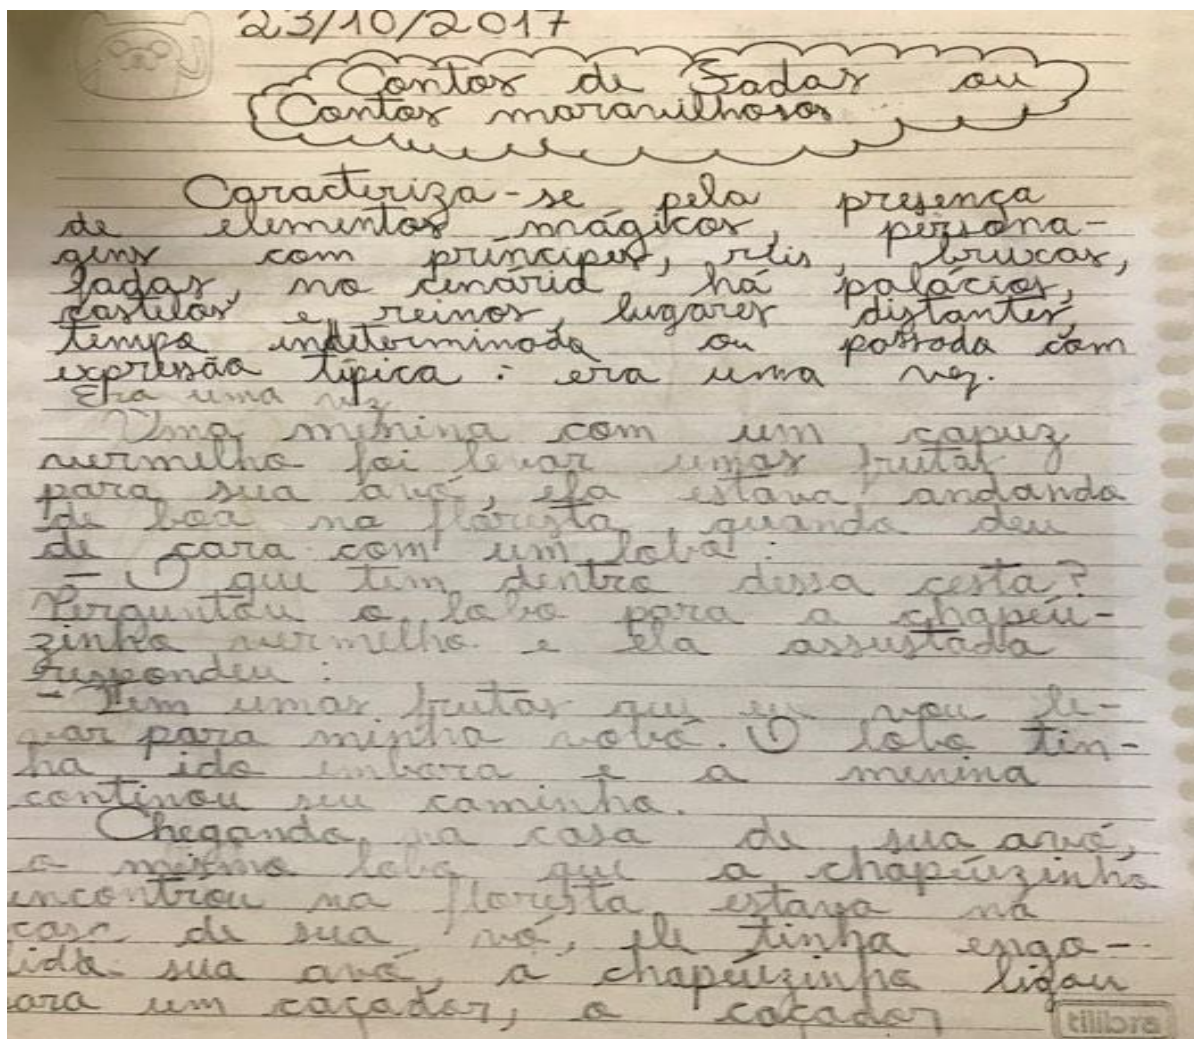 23/10/2017
Contos de Fadas ou
Contos maravilhosos
Caracteriza-se pela presença
de elementos mágicos, persona-
gens com príncipes, reis, bruxas,
fadas, no cenário há palácios,
castelos e reinos, lugares distantes,
tempo indeterminado ou passado com
expressão típica: era uma vez.
Era uma vez
Uma menina com um capuz
vermelho foi levar umas frutas
para sua avó, ela estava andando
de boa na floresta, quando deu
de cara com um lobo:
- O que tem dentro dessa cesta?
Perguntou o lobo para a chapéu-
zinho vermelho e ela assustada
respondeu:
- Tem umas frutas que eu vou le-
var para minha vovó. O lobo tin-
ha ido embora e a menina
continou seu caminho.
Chegando na casa de sua avó,
o mesmo lobo que a chapéuzinho
encontrou na floresta estava na
casa de sua vó, ele tinha engo-
lido sua avó, a chapéuzinho ligou
para um caçador, o caçador
tilibra